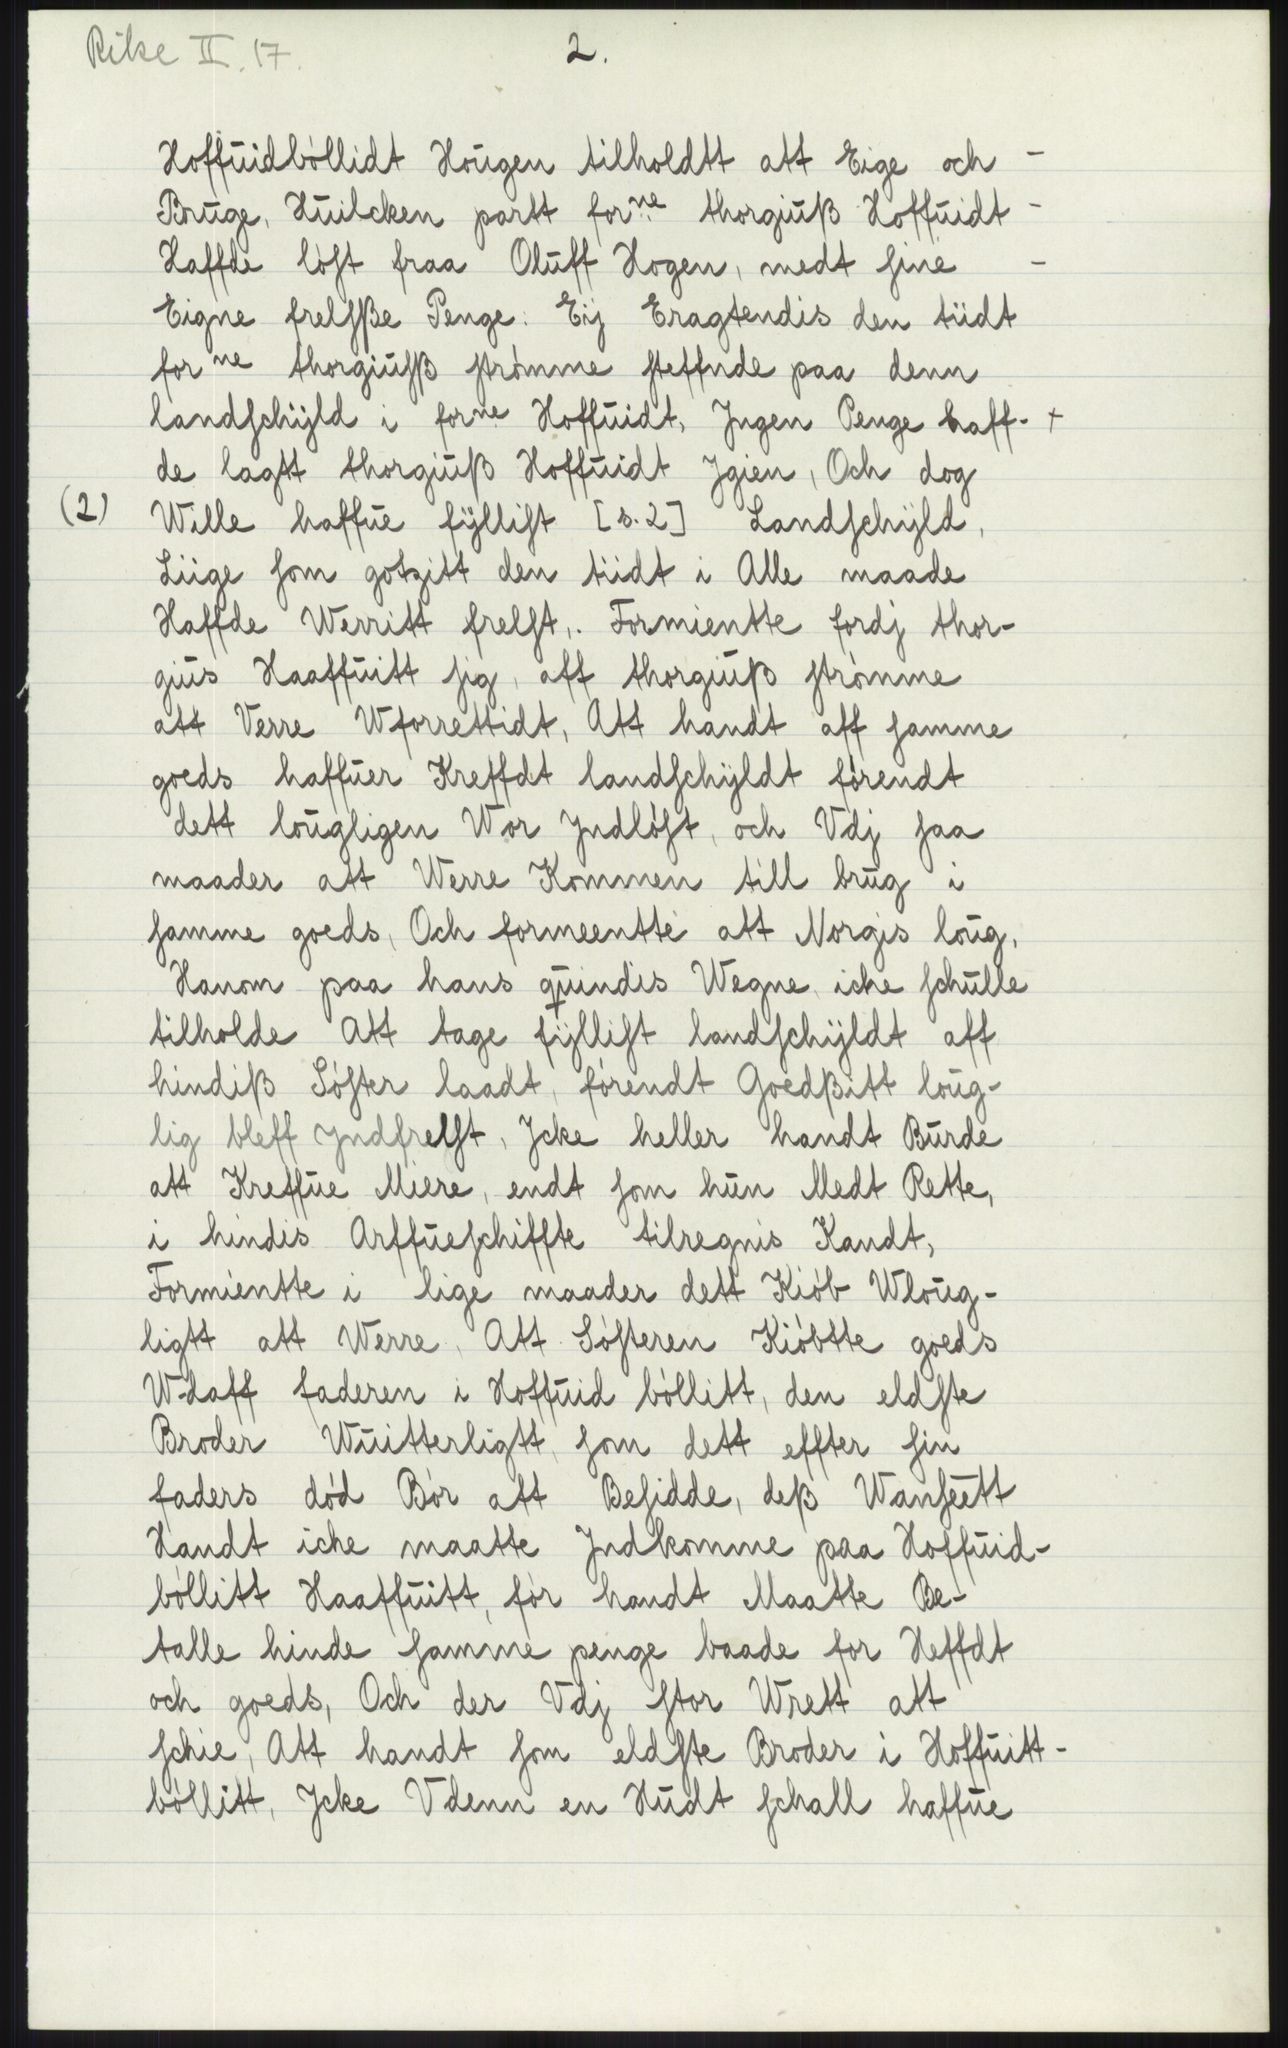 Rike II. 17.
2.
Hoffuidbóllidt Hougen tilholdtt att Eige och –
Bruge, Huilcken partt forne thorgiuß Hoffuidt –
Haffde lóst fraa Oluff Hogen, medt sine –
Eigne frelsße Penge: Eij Eragtendis den tiidt
forne thorgiusß strómme steffnde paa denn
landschÿld i forne Hoffuidt, Jngen Penge haff- +
de lagtt thorgiuß Hoffuidt Jgien, Och dog
(2) Wille haffue fÿllist [s. 2] Landschÿld,
Liige som gotzitt den tiidt i Alle maade
Haffde Werritt frelst,. Formientte fordj thor-
gius Haaffuitt sig, aff thorgiuß strómme
att Verre Wforrettidt, Att handt aff samme
goeds haffuer Kreffdt landschÿldt fórendt
dett lougligen Wor Jndlóst, och Vdj saa
maader att Werre Kommen till brug i
samme goeds, Och formeentte att Norgis loug,
Hanom paa hans quindis Wegne icke schulle
tilholde Att tage fÿllist landschÿldt aff
hindiß Sóster laadt, fórendt Goedßitt loug-
lig bleff Jndfrelst, Jcke heller handt Burde
att Kreffue Miere, endt som hun Medt Rette,
i hindis Arffueschiffte tilregnis Kandt,
Formientte i lige maader dett Kiób Wloug-
ligtt att Werre, Att Sósteren Kióbtte goeds
Wdaff faderen i Hoffuid bóllitt, den eldste
Broder Wuitterligtt, som dett effter sin
faders dód Bór att Besidde, deß Wanseett
Handt icke maatte Jndkomme paa Hoffuid-
bóllitt Haaffuitt, fór handt Maatte Be-
talle hinde samme penge baade for Heffdt
och goeds, Och der Vdj stor Wrett att
schie, Att handt som eldste Broder i Hoffuitt-
bóllitt, Jcke Vdenn en Hudt schall haffue